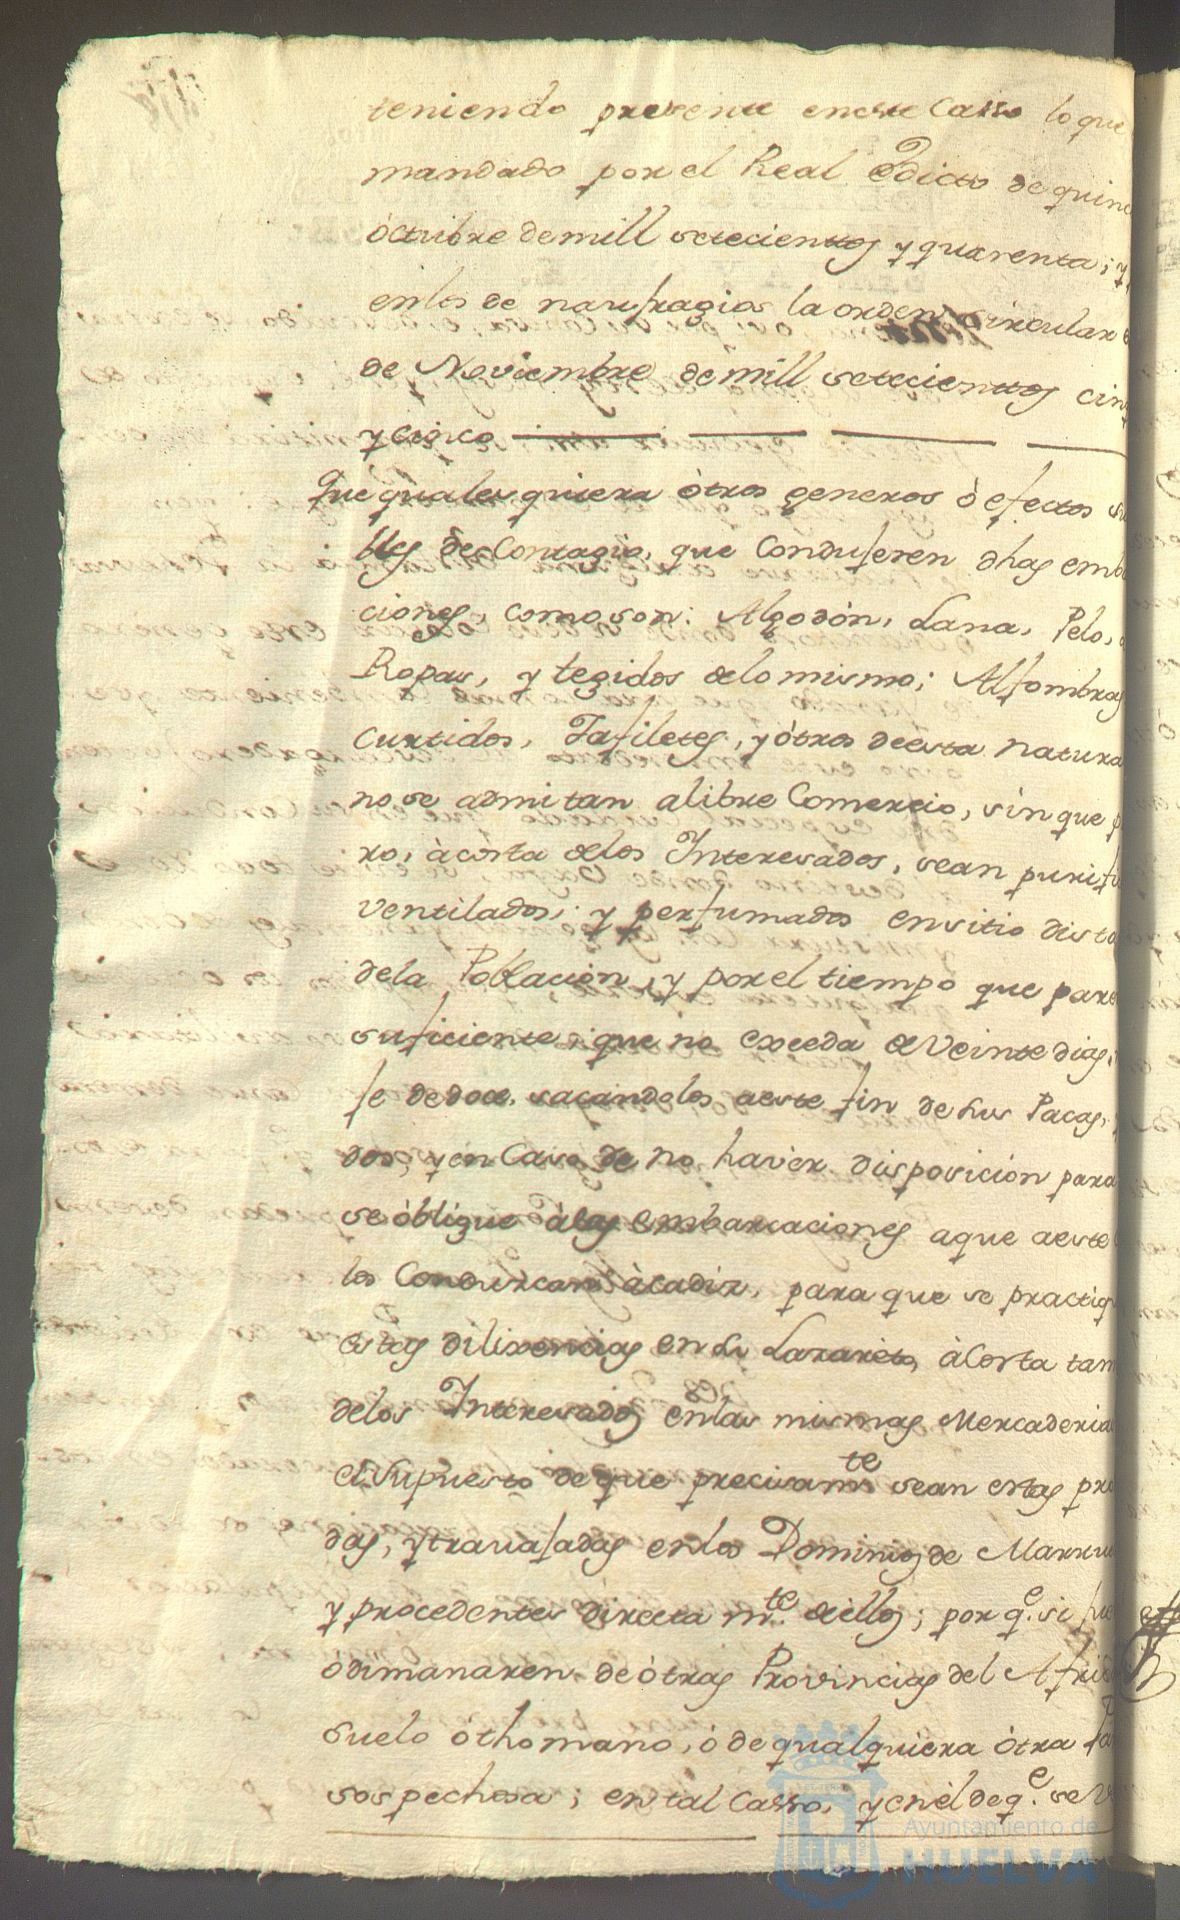 teniendo presente eneste Casso lo que
mandado por el Real Edicto de quin
óctubre de mill setecienttos y quarenta; y
enlos de naufragios la orden circular
de Noviembre de mill setecienttos cin
y cinco
Que qualesquiera ótros generos ó efectos su
bles de Contagio, que Condujeren dhas emb
ciones, como son: Algodón, Lana, Pelo,
Ropas, y tegidos delo mismo; Alfombras
curtidos, Tafiletes, y ótros deesta natura
no se admitan alibre Comercio, sin que p
ro, àcosta delos Interesados, sean purifi
ventilados, y perfumados ensitio dista
dela Poblacion, y por el tiempo que pare
suficiente, que no exceda de Veinte dias,
je de doce, sacandolos aeste fin de sus Pacas,
dos, y en Caso de no haver disposicion para
se óbligue àlas embarcaciones aque aeste
los Conduzcan àcadiz, para que se practiq
estas dilixencias en su Lazareto, àCosta tam
delos Interesados enlas mismas Mercaderia
el supuesto de que precisamte sean estas pro
das, y travajadas enlos Dominios de Marrue
y procedentes directa mte. de ellos; por qe. si fue
odimanaren de ótras Provincias del Afric
suelo óthomano, ó de qualquiera ótra pa
sospechosa; ental Casso, y enél de qe. se V
Ayuntamiento de
HUELVA